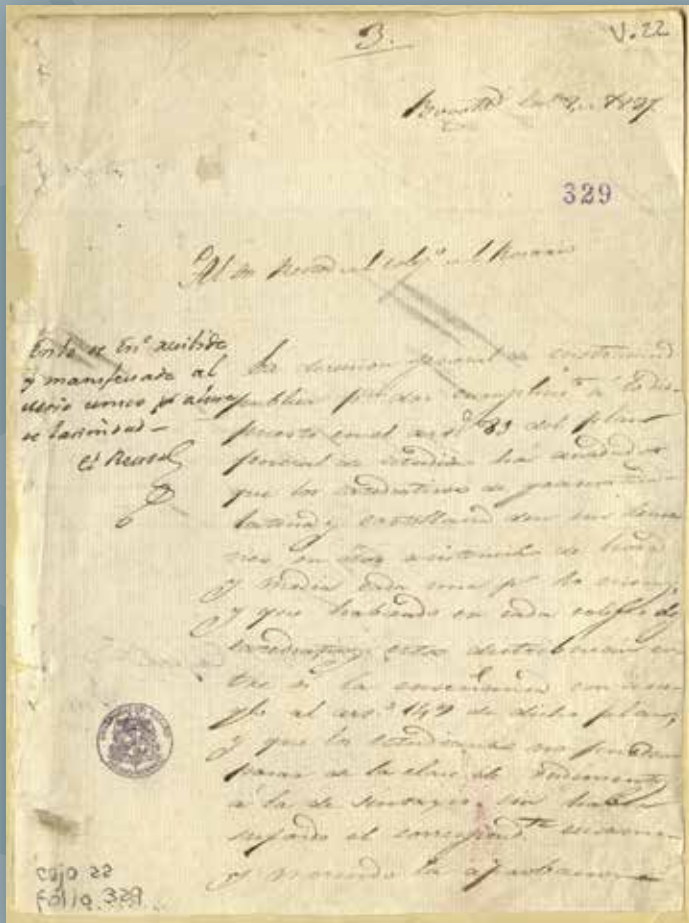 3.
V. 22
Bogotá En.º 2, de 1827
329
Al Sor Rector del colegº del Rosario
En 10 de En.º recibida
y manifestada al
unico pª
de latinidad –
el Rector
La direccion general de instrucⁿ
publica pª dar cumplimᵗº a lo dis-
puesto en el artº 33 del plan
general de estudios ha acordado
que los catedraticos de gramatica
latina y castellana den sus
nes en dos asistencias de hora
y media cada una pʳ lo menos,
y que habiendo en cada colegio dos
catedraticos, estos distribuiran en
tre si la enseñanza con arre-
glo al artº 149 de dicho plan,
y que los estudiantes no puedan
pasar de la clase de rudimentos
á la de sintaxis, sin haber
sufrido el correspondᵗᵉ examen
y merecido la aprobacion
caja 22
folio 329